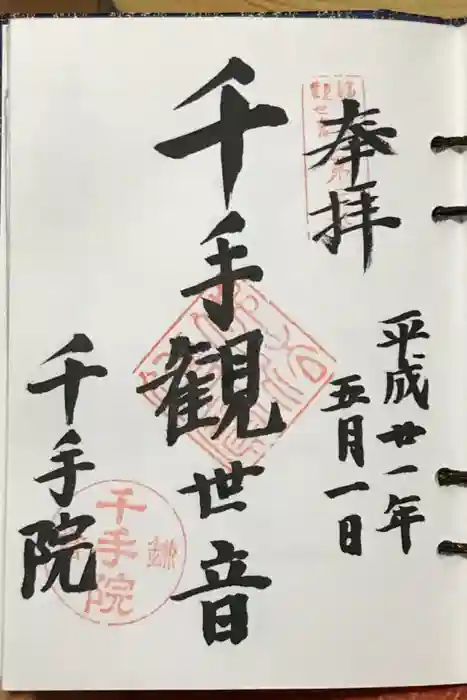 奉拝
平成廿一年
五月一日
千手観世音
千手院
千手院
鎌